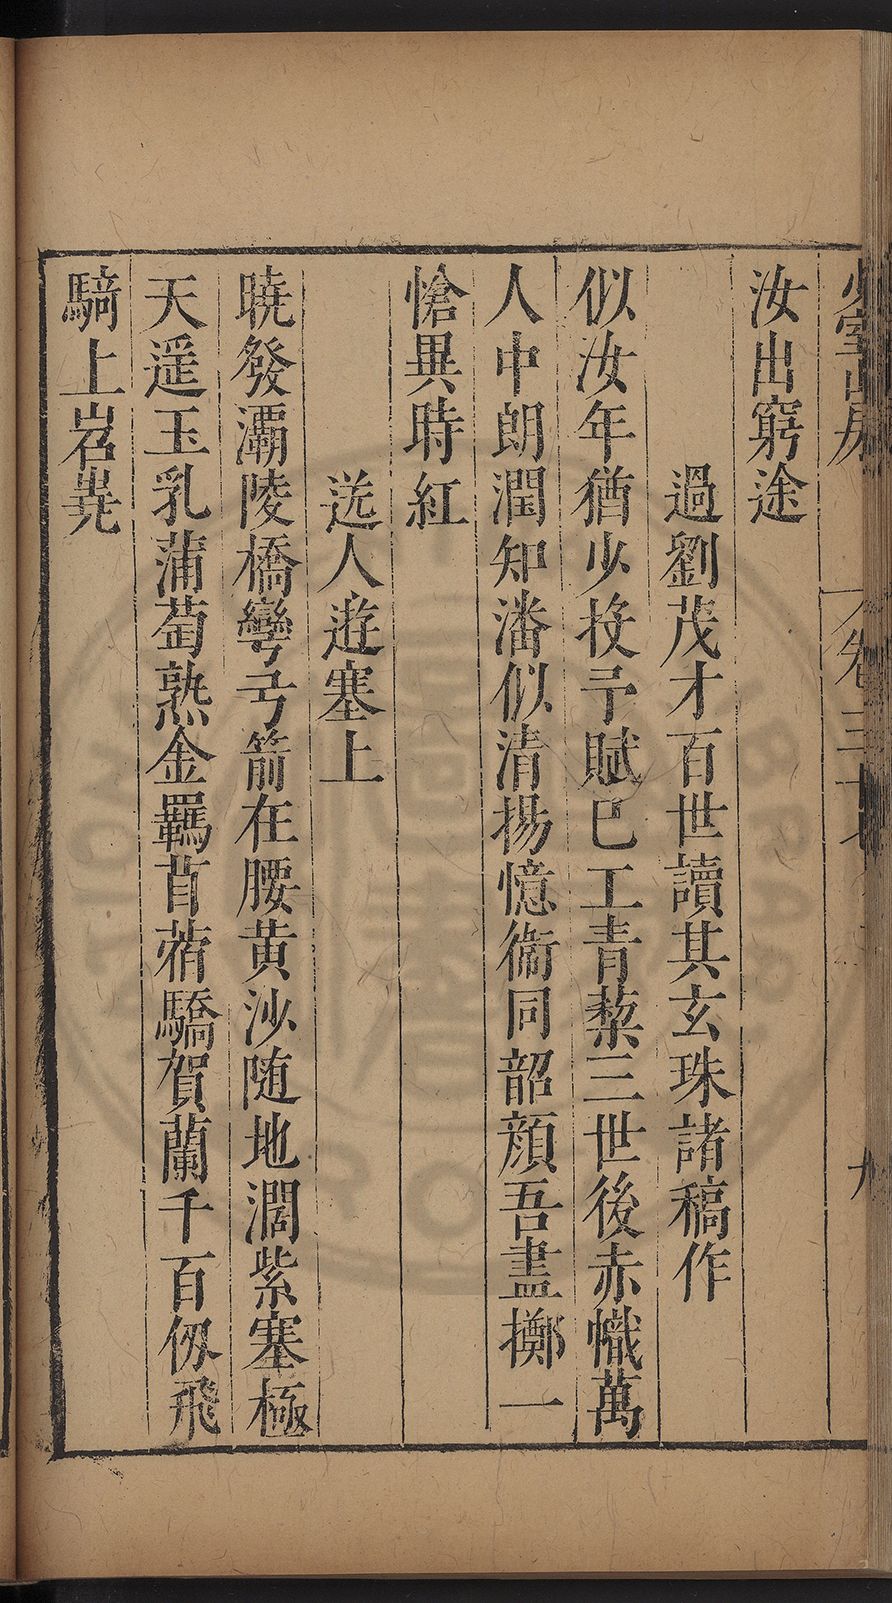 少室山房 卷三十 九
汝出窮途
過劉茂才百世讀其玄珠諸稿作
似汝年猶少投予賦已工青藜三世後赤幟萬
人中朗潤知潘似清揚憶衞同韶顔吾盡擲一
愴異時紅
送人遊塞上
曉發灞陵橋彎弓箭在腰黄沙随地濶紫塞極
天遥玉乳蒲萄熟金羈苜蓿驕賀蘭千百仭飛
騎上岧嶤